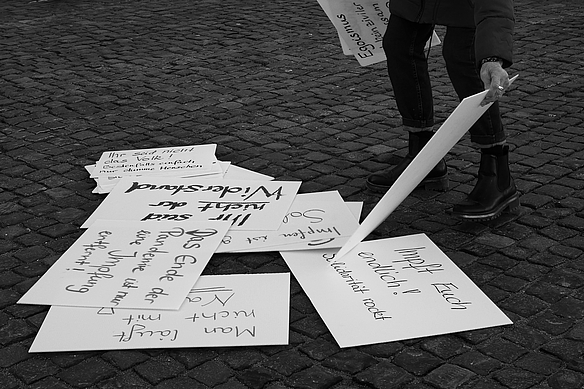 Egoismus
Ihr seid nicht
das Volk!
nur dumme Menschen
Ihr seid
nicht der
Widerstand
Impfen
Das Ende der
Pandemie ist nur
eine Impfung
entfernt!
Man läuft
nicht mit
Na
Impft Euch
endlich!
Solidarität rockt